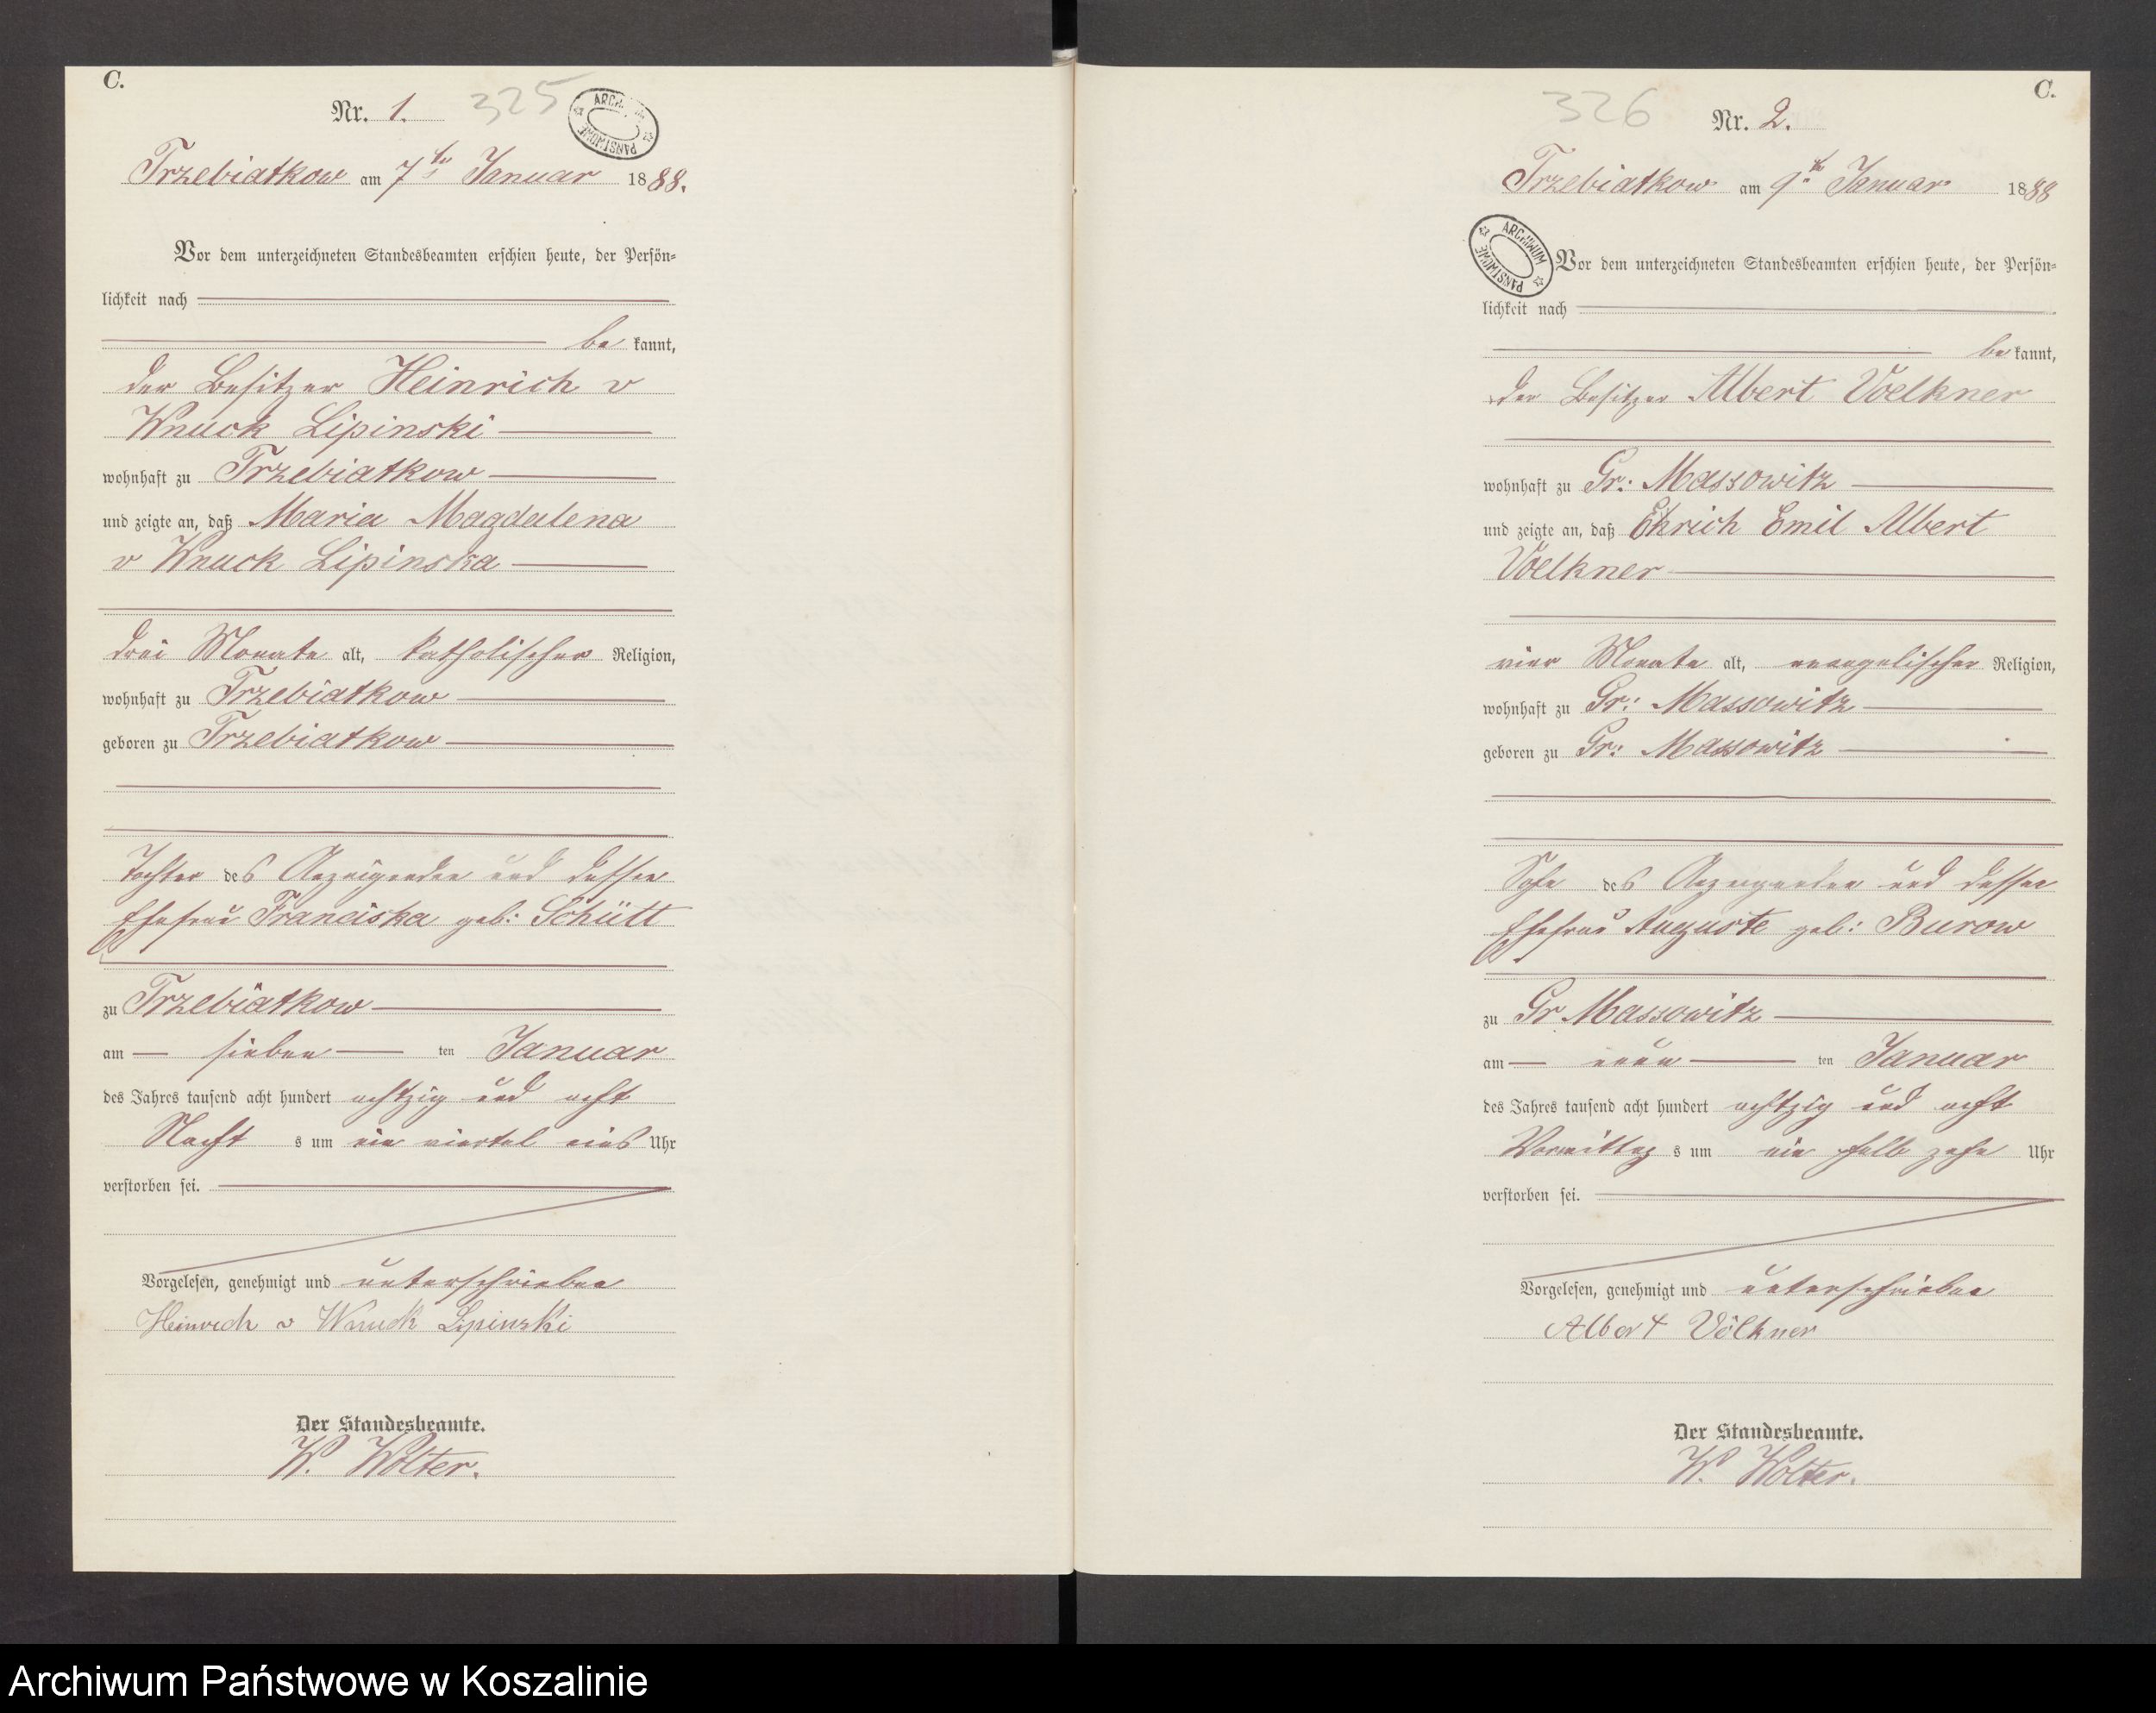 C.
Nr. 1.
325
ARCHIWUM PAŃSTWOWE
Trzebiatkow am 7ten Januar 1888.
Vor dem unterzeichneten Standesbeamten erschien heute, der Persön-
lichkeit nach
be kannt,
der Besitzer Heinrich v
Wnuck Lipinski
wohnhaft zu Trzebiatkow
und zeigte an, daß Maria Magdalena
v Wnuck Lipinska
drei Monate alt, katholischer Religion,
wohnhaft zu Trzebiatkow
geboren zu Trzebiatkow
Tochter des Anzeigenden und dessen
Ehefrau Franciska geb: Schütt
zu Trzebiatkow
am sieben ten Januar
des Jahres tausend acht hundert achtzig und acht
Nacht s um ein viertel eins Uhr
verstorben sei.
Vorgelesen, genehmigt und unterschrieben
Heinrich v Wnuck Lipinski
Der Standesbeamte.
W. Wolter.
C.
326
Nr. 2.
Trzebiatkow am 9ten Januar 1888
ARCHIWUM PAŃSTWOWE
Vor dem unterzeichneten Standesbeamten erschien heute, der Persön-
lichkeit nach
be kannt,
der Besitzer Albert Voelkner
wohnhaft zu Gr: Massowitz
und zeigte an, daß Ehrich Emil Albert
Voelkner
vier Monate alt, evangelischer Religion,
wohnhaft zu Gr: Massowitz
geboren zu Gr: Massowitz
Sohn des Anzeigenden und dessen
Ehefrau Auguste geb: Burow
zu Gr Massowitz
am neun ten Januar
des Jahres tausend acht hundert achtzig und acht
Vormittag s um ein halb zehn Uhr
verstorben sei.
Vorgelesen, genehmigt und unterschrieben
Albert Völkner
Der Standesbeamte.
W. Wolter.
Archiwum Państwowe w Koszalinie